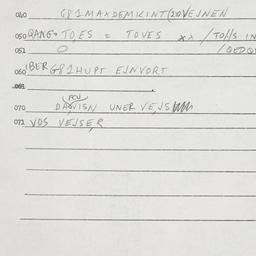 040 G81MAXDEMKINT(20)VEJNEN
050 QANG= TO,ES = TOVES xx / TOHS IN
051 O / QEDQ
060 'BER G81HUPT EJNVORT
061
070 UNER VEJS
071 VOS VEJSER